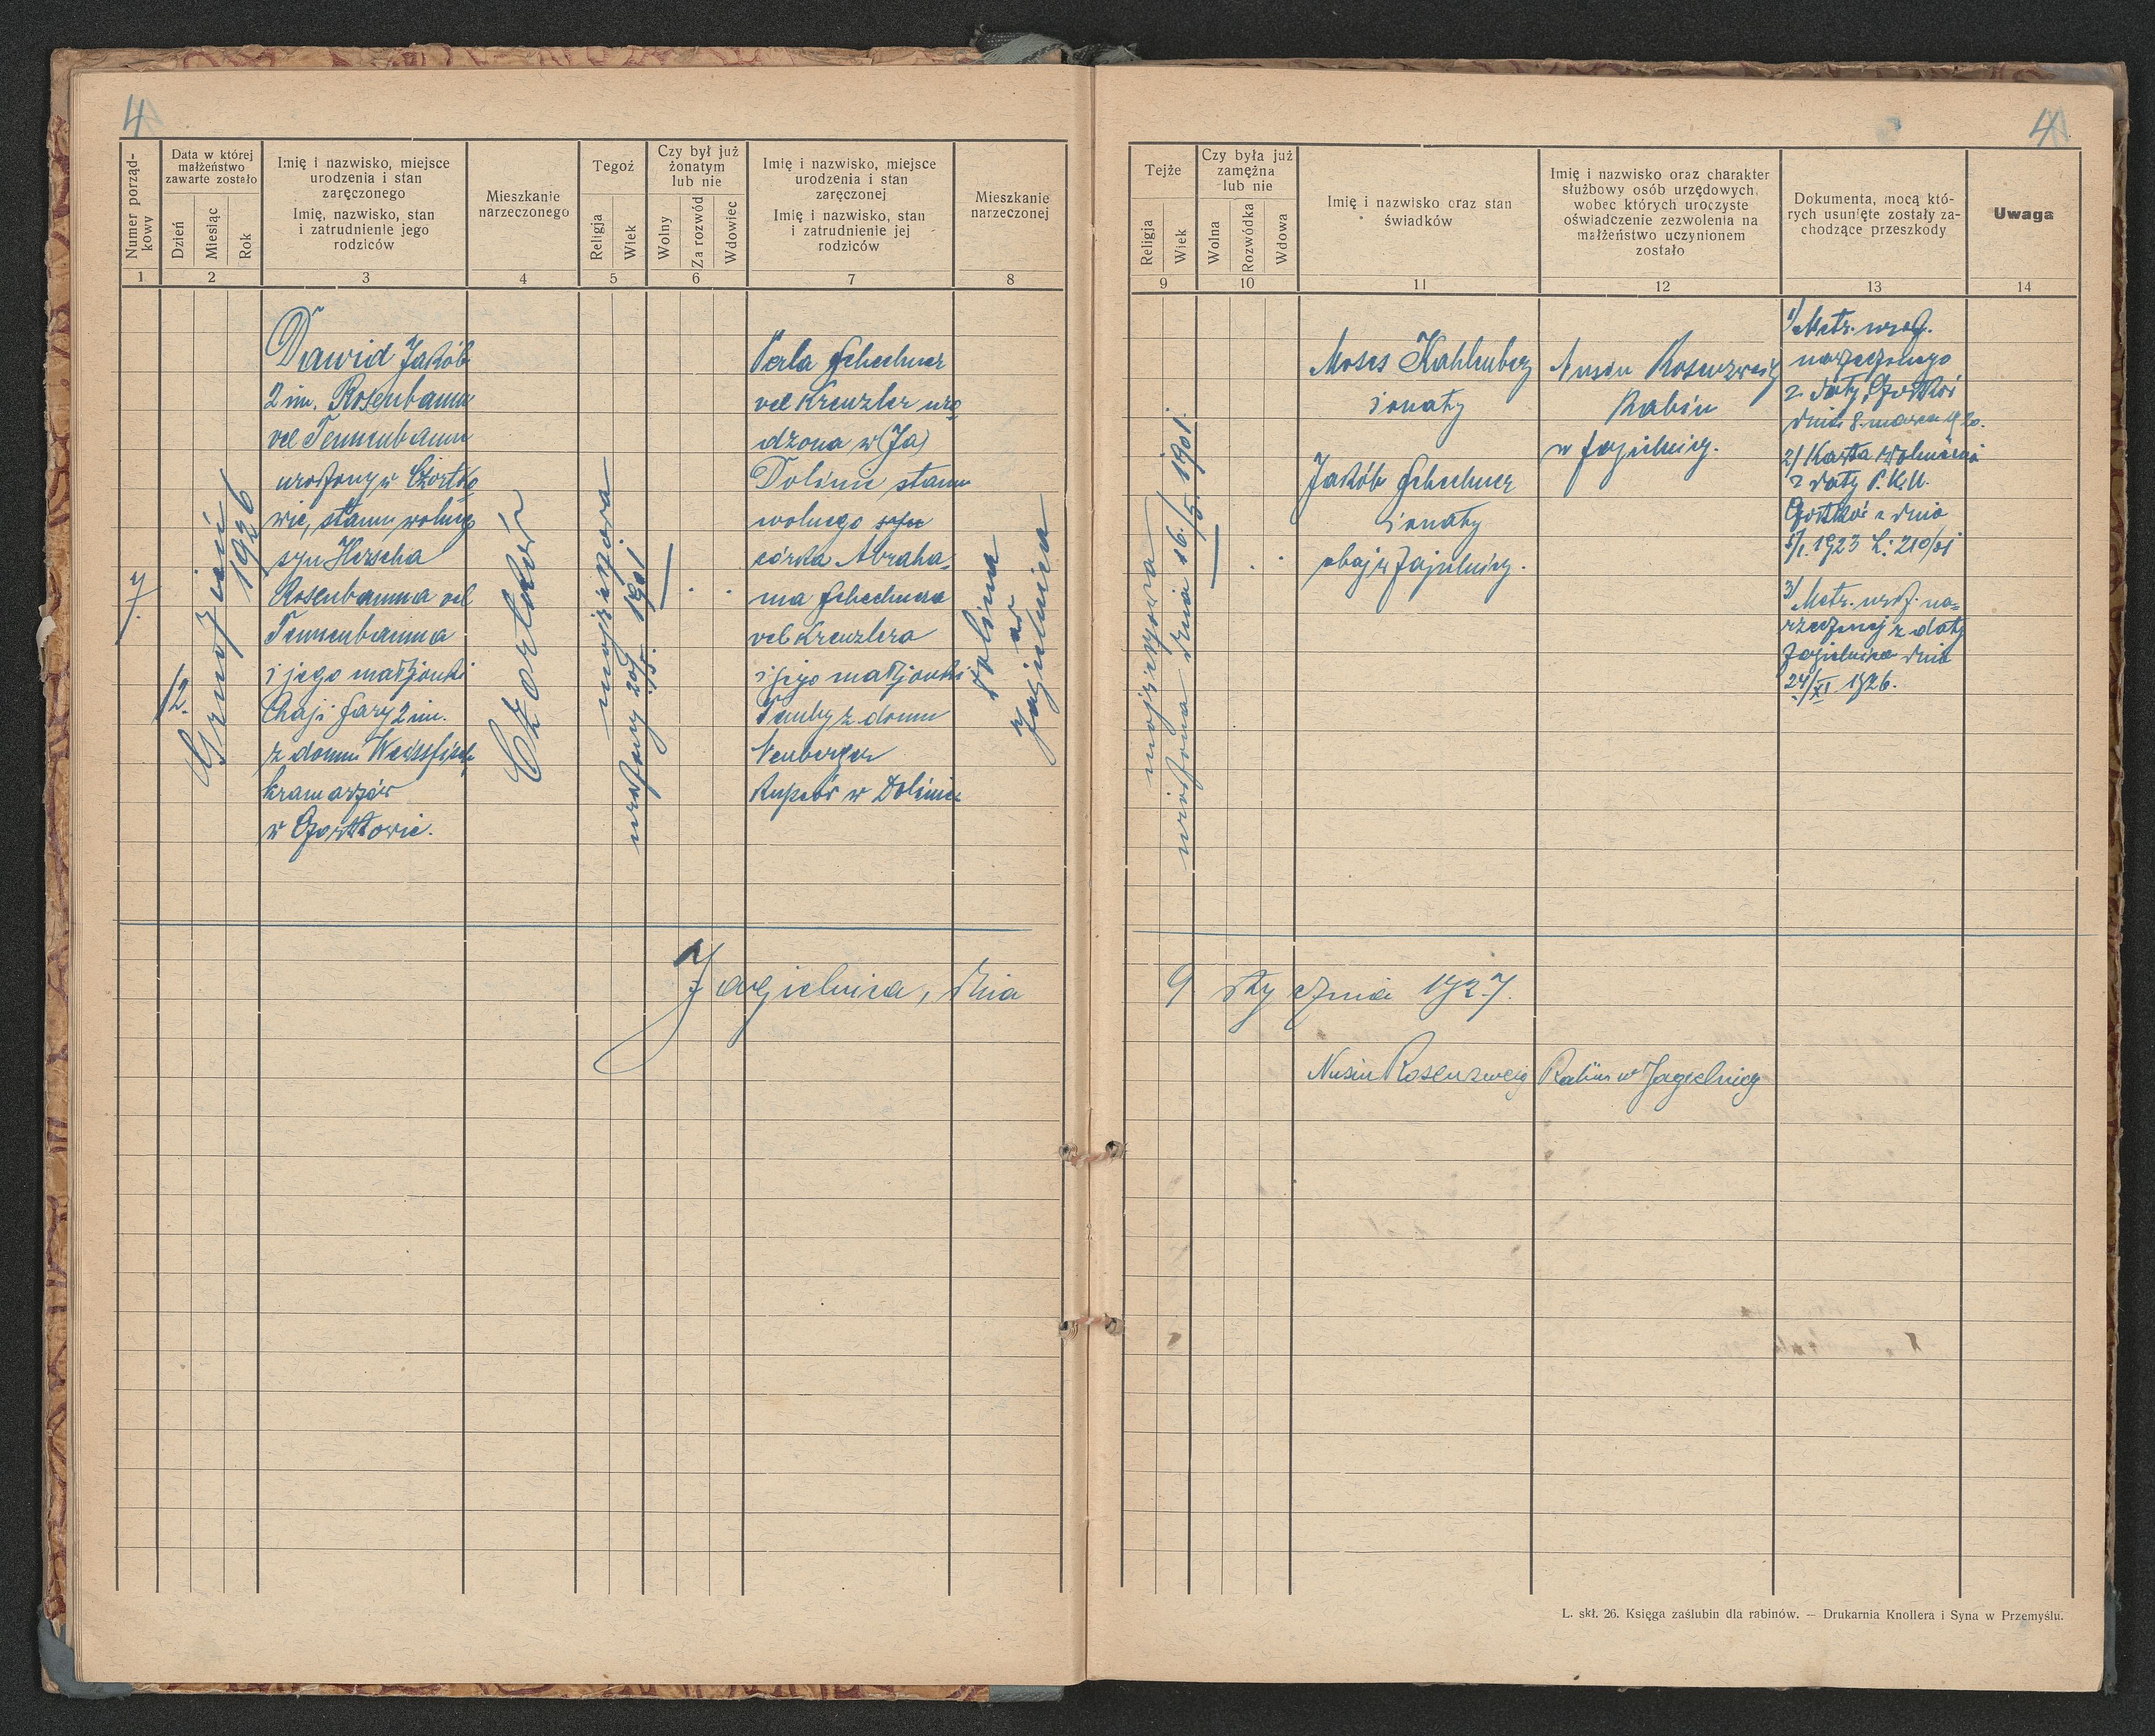 4
Numer porząd-
kowy
Data w której
małżeństwo
zawarte zostało
Dzień
Miesiąc
Rok
Imię i nazwisko, miejsce
urodzenia i stan
zaręczonego
Imię, nazwisko, stan
i zatrudnienie jego
rodziców
Mieszkanie
narzeczonego
Tegoż
Religja
Wiek
Czy był już
żonatym
lub nie
Wolny
Za rozwód
Wdowiec
Imię i nazwisko, miejsce
urodzenia i stan
zaręczonej
Imię i nazwisko, stan
i zatrudnienie jej
rodziców
Mieszkanie
narzeczonej
1 2 3 4 5 6 7 8
7.
12.
Grudzień
1926
Dawid Jakób
2 im. Rosenbaum
vel Tennenbaum
urodzony w Czortko
wie, stanu wolneg
syn Herscha
Rosenbauma vel
Tennenbauma
i jego małżonki
Chaji Sary 2 im.
z domu Weissfisch
kramarzów
w Czortkowie.
Czortków
mojżeszowa
urodzony 20/5. 1901
Perla Schechner
vel Kreuzler uro
dzona w (Ja)
Dolinie stanu
wolnego syn
córka Abraha-
ma Schechnera
vel Kreuzlera
i jego małżonki
Tauby z domu
Neuberger
Kupców w Dolinie
Dolina
ad
Jagielnica
Jagielnica, dnia
4
Tejże
Religja
Wiek
Czy była już
zamężna
lub nie
Wolna
Rozwódka
Wdowa
Imię i nazwisko oraz stan
świadków
Imię i nazwisko oraz charakter
służbowy osób urzędowych,
wobec których uroczyste
oświadczenie zezwolenia na
małżeństwo uczynionem
zostało
Dokumenta, mocą któ-
rych usunięte zostały za-
chodzące przeszkody
Uwaga
9 10 11 12 13 14
mojżeszowa
urodzona dnia 16./5. 1901.
Moses Kahlenberg
żonaty
Jakób Schechner
żonaty
obaj w Jagielnicy.
Nusin Rosenzweig
Rabin
w Jagielnicy.
1) Metr. urodz.
narzeczonego
z daty Czortków
dnia 8. marca 1920.
2) Karta zwolnienia
z daty P.K.U.
Czortków z dnia
5/1. 1923 L: 210/21
3) Metr. urodz. na-
rzeczonej z daty
Jagielnica dnia
24/XI 1926.
9 stycznia 1927.
Nusin Rosenzweig Rabin w Jagielnicy
L. skł. 26. Księga zaślubin dla rabinów. — Drukarnia Knollera i Syna w Przemyślu.